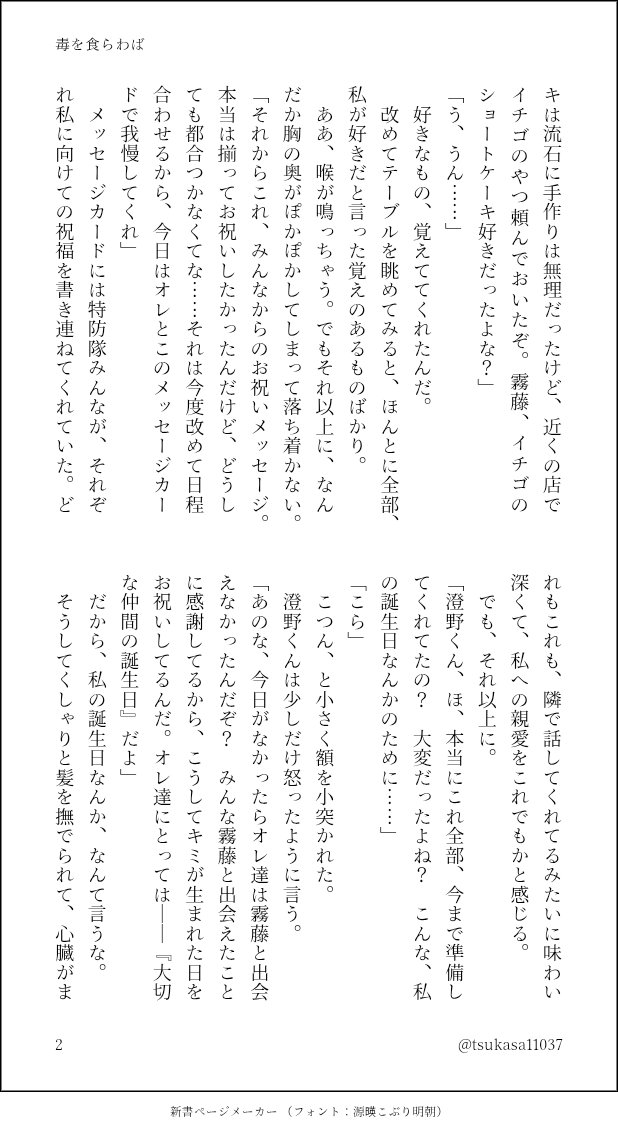 毒を食らわば
キは流石に手作りは無理だったけど、近くの店で
イチゴのやつ頼んでおいたぞ。霧藤、イチゴの
ショートケーキ好きだったよな？」
「う、うん……」
　好きなもの、覚えててくれたんだ。
　改めてテーブルを眺めてみると、ほんとに全部、
私が好きだと言った覚えのあるものばかり。
　ああ、喉が鳴っちゃう。でもそれ以上に、なん
だか胸の奥がぽかぽかしてしまって落ち着かない。
「それからこれ、みんなからのお祝いメッセージ。
本当は揃ってお祝いしたかったんだけど、どうし
ても都合つかなくてな……それは今度改めて日程
合わせるから、今日はオレとこのメッセージカー
ドで我慢してくれ」
　メッセージカードには特防隊みんなが、それぞ
れ私に向けての祝福を書き連ねてくれていた。ど
れもこれも、隣で話してくれてるみたいに味わい
深くて、私への親愛をこれでもかと感じる。
　でも、それ以上に。
「澄野くん、ほ、本当にこれ全部、今まで準備し
てくれてたの？　大変だったよね？　こんな、私
の誕生日なんかのために……」
「こら」
　こつん、と小さく額を小突かれた。
　澄野くんは少しだけ怒ったように言う。
「あのな、今日がなかったらオレ達は霧藤と出会
えなかったんだぞ？　みんな霧藤と出会えたこと
に感謝してるから、こうしてキミが生まれた日を
お祝いしてるんだ。オレ達にとっては――『大切
な仲間の誕生日』だよ」
　だから、私の誕生日なんか、なんて言うな。
　そうしてくしゃりと髪を撫でられて、心臓がま
2
@tsukasa11037
新書ページメーカー（フォント：源暎こぶり明朝）